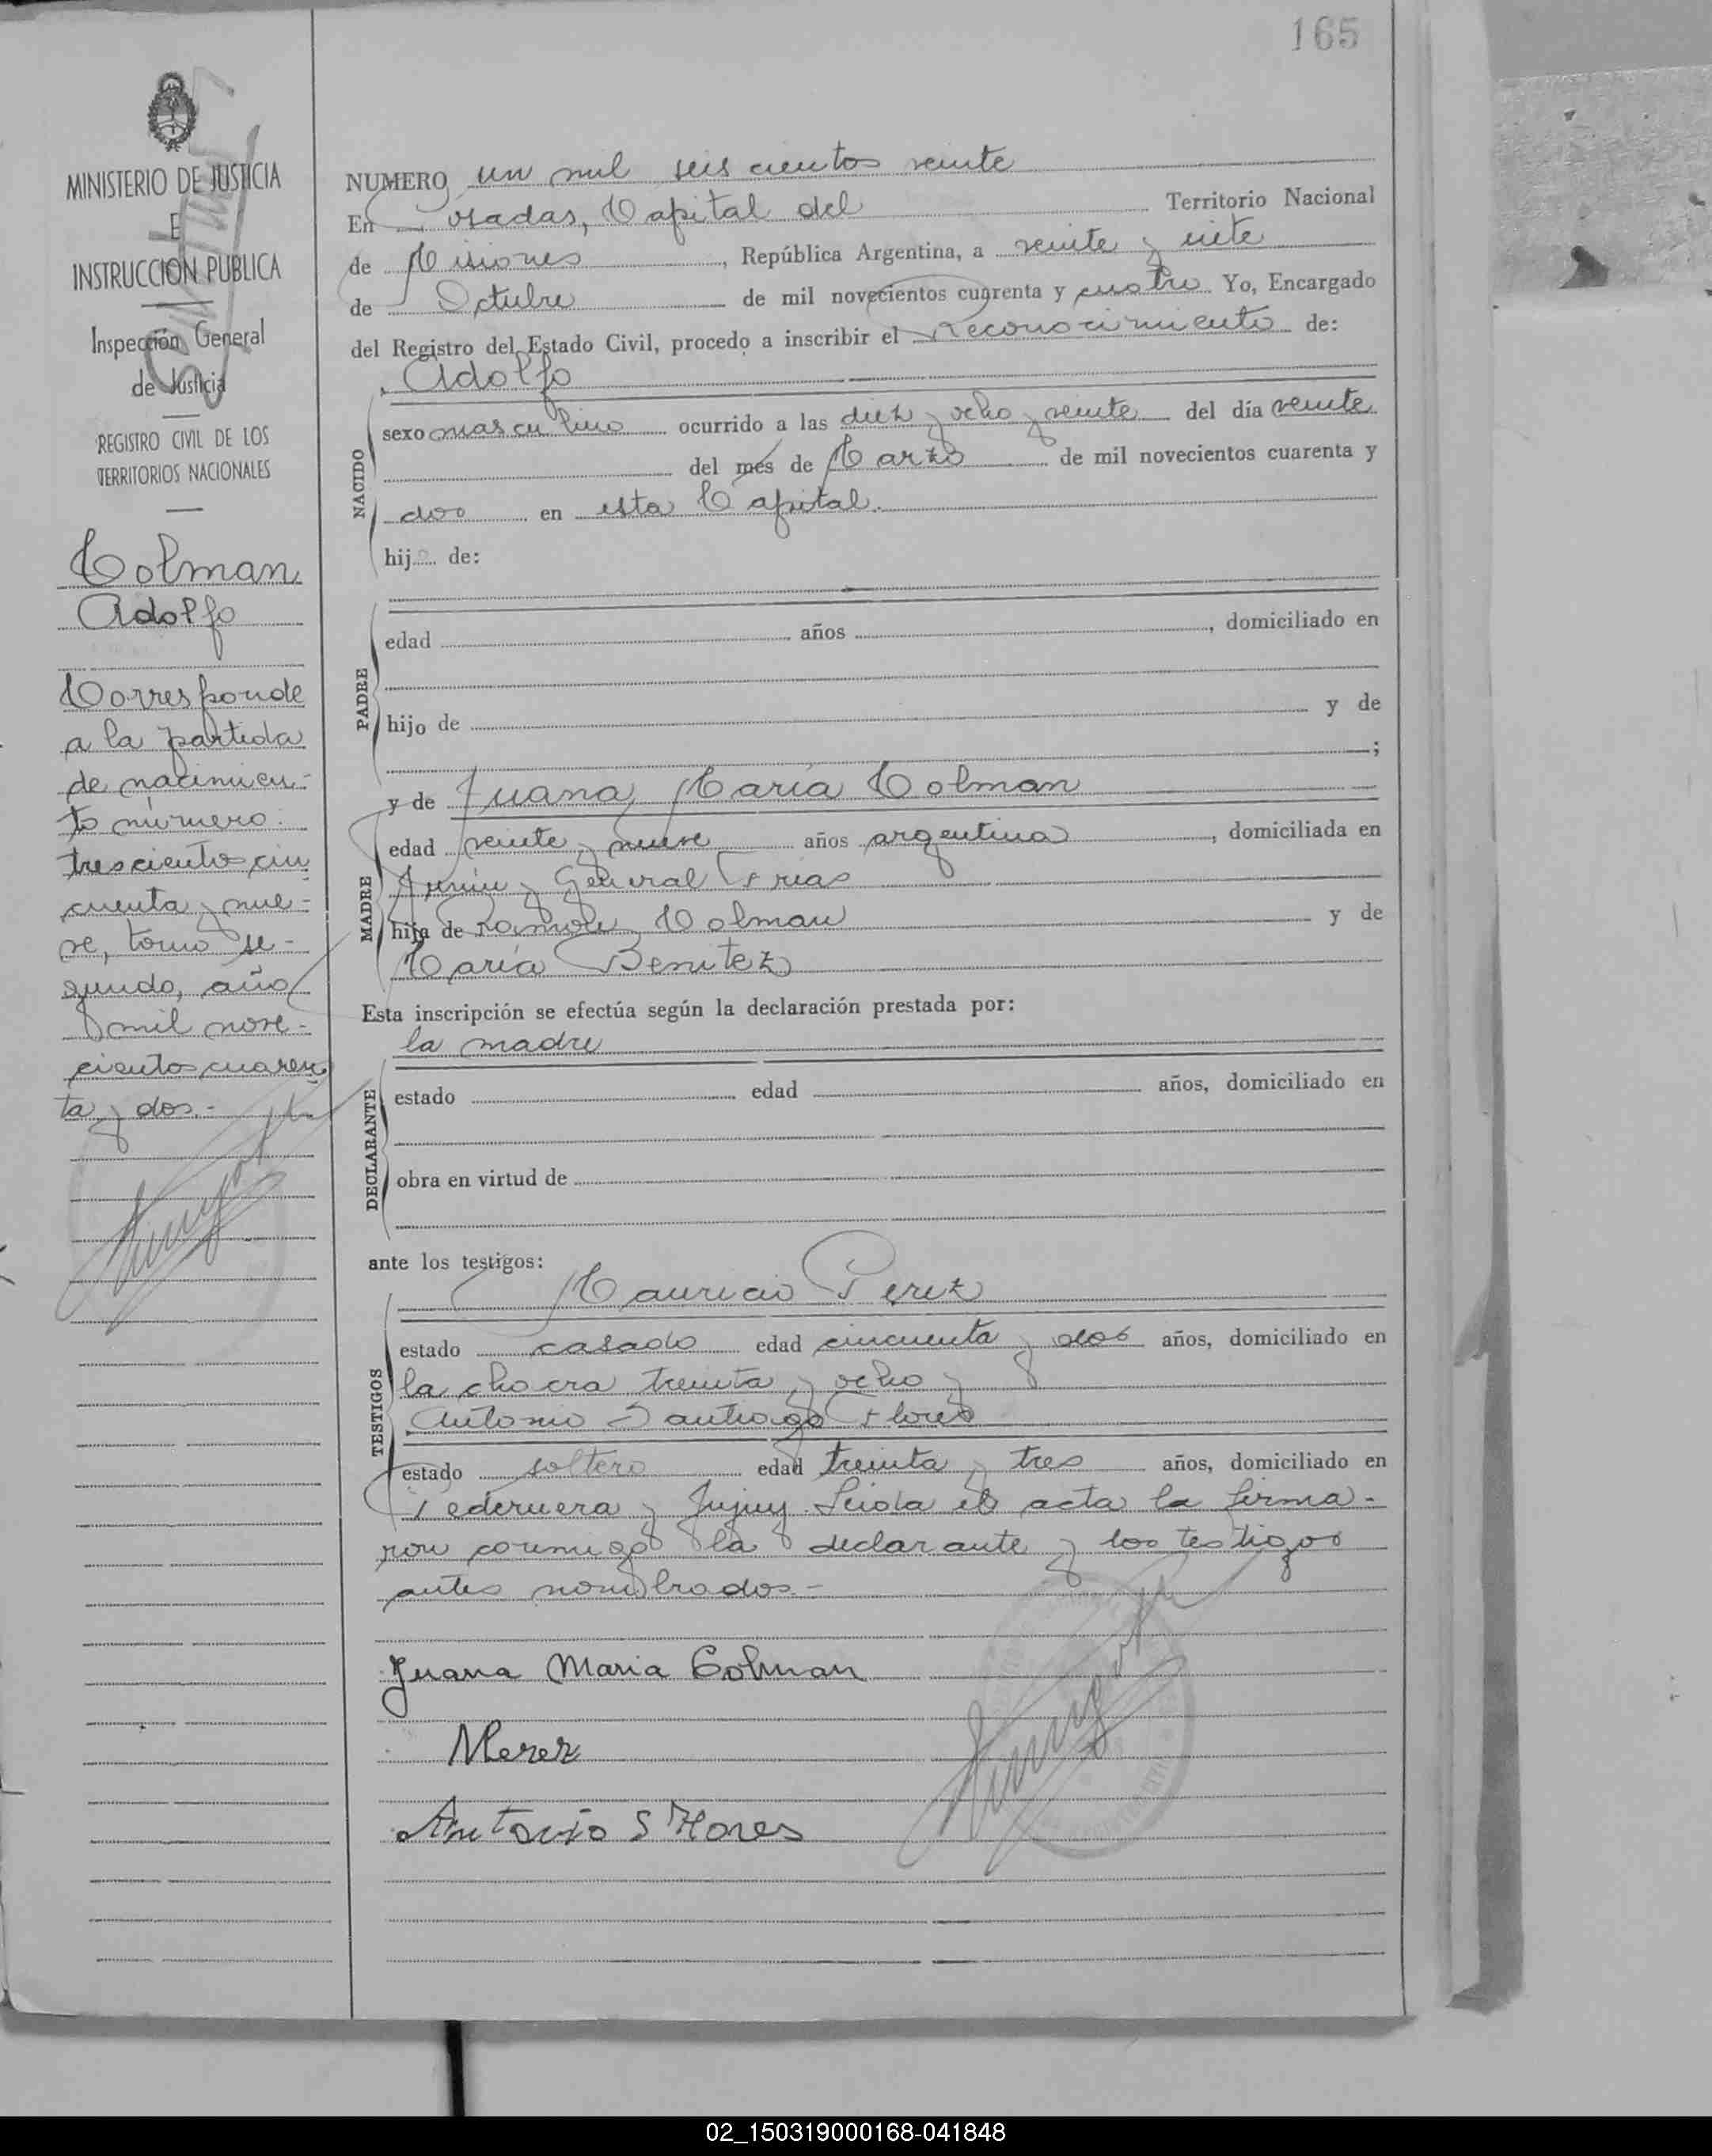 165
MINISTERIO DE JUSTICIA
E
INSTRUCCIÓN PUBLICA
Inspección General
de Justicia
REGISTRO CIVIL DE LOS
TERRITORIOS NACIONALES
Colman
Adolfo
Corresponde
a la partida
de nacimien-
to número
trescientos cin
cuenta y nue-
ve, tomo se-
gundo, año
mil nove-
cientos cuaren
ta y dos.-
NUMERO un mil seis cientos veinte
En Posadas, Capital del Territorio Nacional
de Misiones, República Argentina, a veinte y siete
de Octubre de mil novecientos cuarenta y cuatro Yo, Encargado
del Registro del Estado Civil, procedo a inscribir el Reconocimiento de:
Adolfo
NACIDO
sexo masculino ocurrido a las diez y ocho y veinte del día veinte
del mes de Marzo de mil novecientos cuarenta y
dos en esta Capital.
hijo de:
PADRE
edad años , domiciliado en
hijo de y de
;
y de Juana María Colman
MADRE
edad veinte y nueve años argentina, domiciliada en
Junín y General Frias
hija de Ramón Colman y de
María Benitez
Esta inscripción se efectúa según la declaración prestada por:
la madre
DECLARANTE
estado edad años, domiciliado en
obra en virtud de
ante los testigos:
Mauricio Perez
TESTIGOS
estado casado edad cincuenta y dos años, domiciliado en
la chacra treinta y ocho y
Antonio Santiago Flores
estado soltero edad treinta y tres años, domiciliado en
Pedernera y Jujuy. Leida el acta la firma-
ron conmigo la declarante y los testigos
antes nombrados.-
Juana Maria Colman
MPerez
Antonio S Flores
02_150319000168-041848